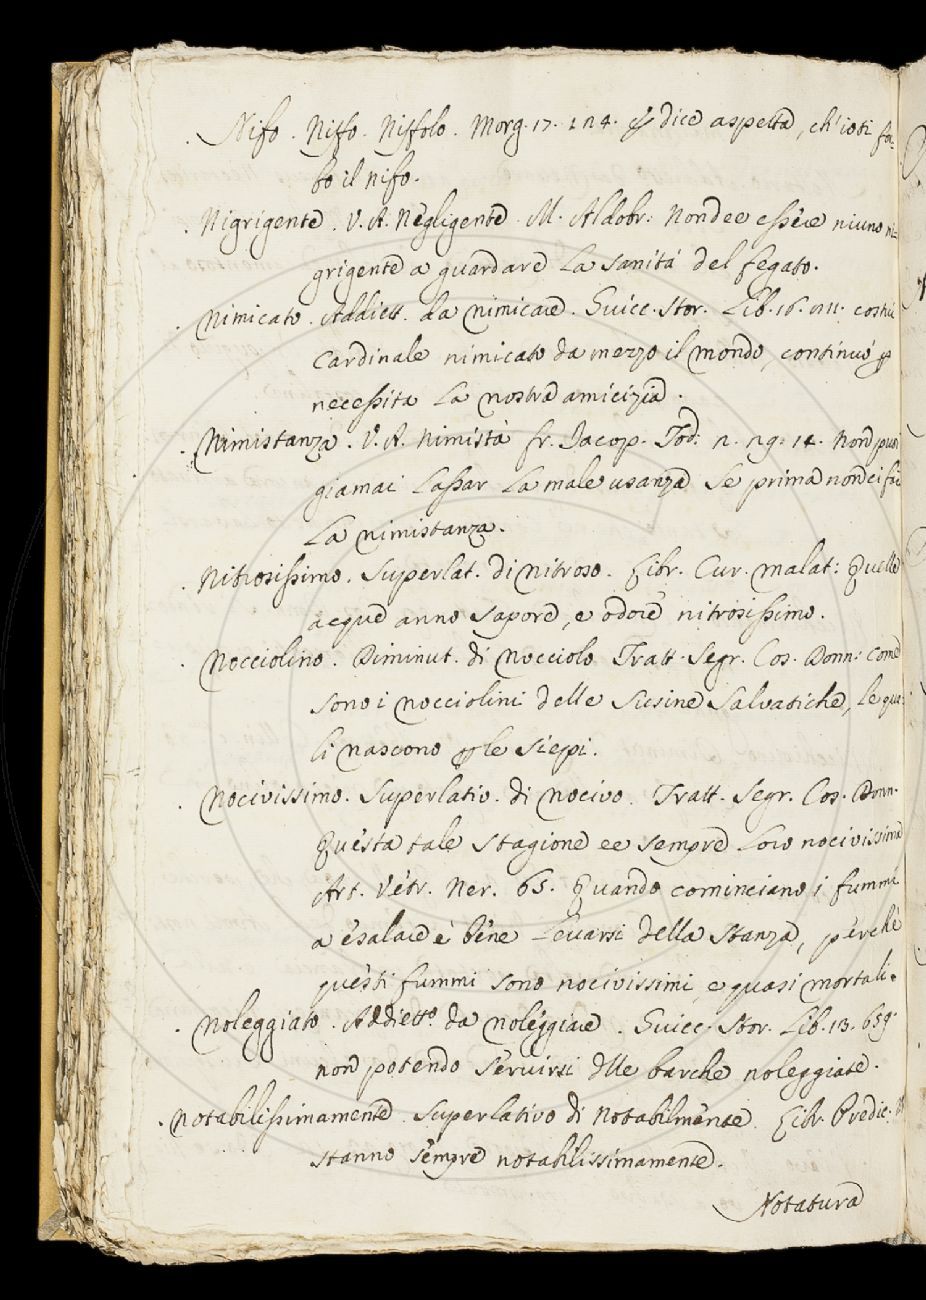 . Nifo . Niffo . Niffolo . Morg. 17. 124. e dice aspetta, ch' ioti fa-
ro il nifo.
. Nigrigente . V. A. Negligente . M. Aldobr: Non dee essere niuno ni=
grigente a guardare la sanità del fegato.
. Nimicato . Addiett. da nimicare . Guicc. Stor. Lib. 16. costui
Cardinale nimicato da mezzo il mondo, continuó p
necessita la nostra amicizia .
. Nimistanza . V. A. Nimistà fr. Jacop. Tod: 14. Non puoi
giamai lassar la male usanza se prima non ci fai
la nimistanza.
. Nitrosissimo . Superlat. di nitroso. Libr. Cur. malat: Quelle
acque anno sapore, e odore nitrosissimo.
. Nocciolino . Diminut. di Nocciolo Tratt. Segr. Cos. Donn: come
sono i nocciolini delle Susine Salvatiche, le qua:
li nascono p le siepi.
. Nocivissimo. Superlativ. di nocivo. Tratt. Segr. Cos. Donn.
Questa tale stagione ee sempre loro nocivissima
Art. Vetr. Ner. 65. Quando cominciano i fummi
a esalare è bene levarsi della stanza, perchè
questi fummi sono nocivissimi, e quasi mortali.
. Noleggiato . Addietto. da noleggiare . Guicc. Stor. Lib. 13. 659.
non potendo servirsi dlle barche noleggiate.
. Notabilissimamente Superlativo di Notabilmente. Libr. Predic.
stanno sempre notabilissimamente.
Notatura